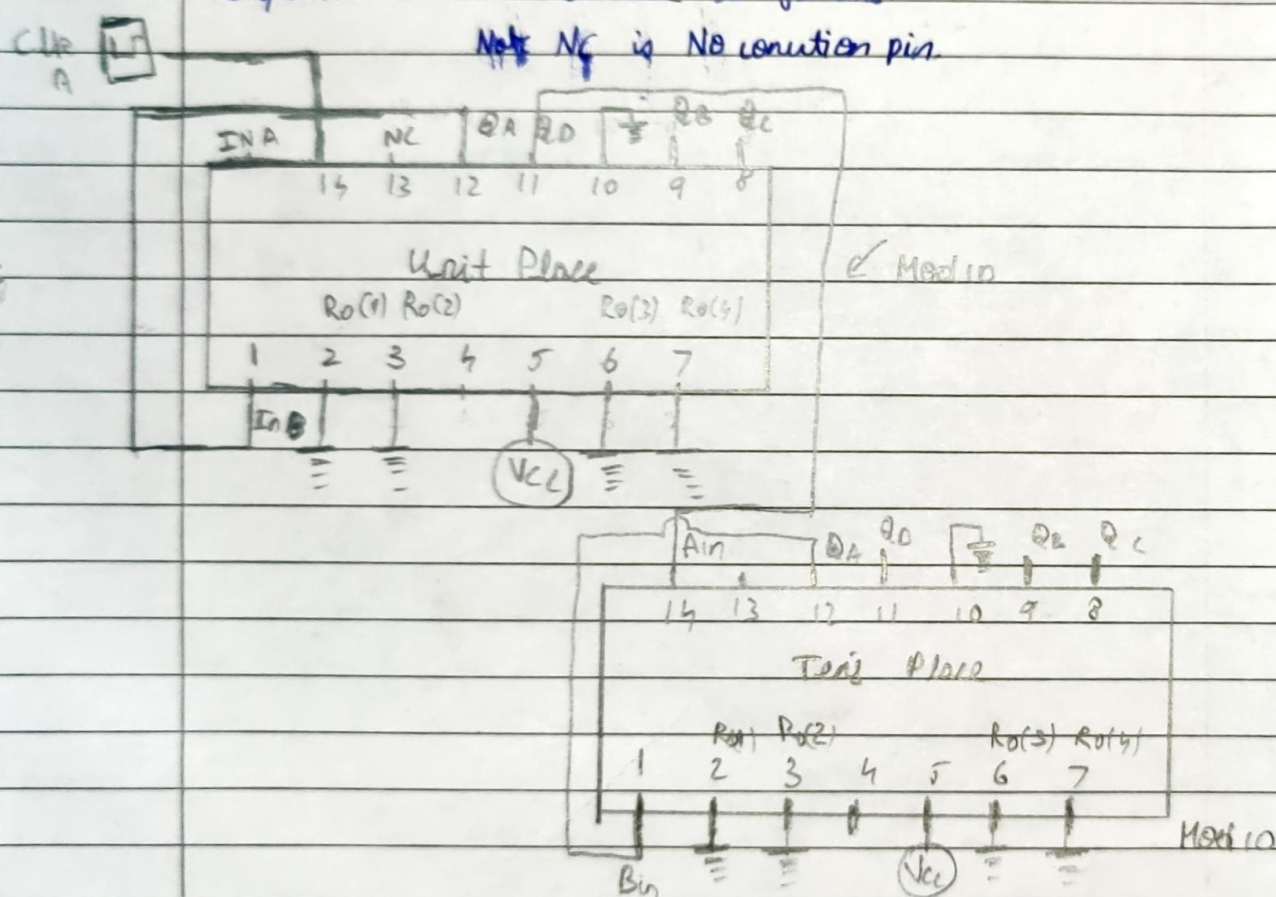 Clk
A
Note NC is No conution pin.
INA NC QA QD QB QC
14 13 12 11 10 9 8
Unit Place
Mod 10
Ro(1) Ro(2) Ro(3) Ro(4)
1 2 3 4 5 6 7
In B
Vcc
Ain QA QD QB QC
14 13 12 11 10 9 8
Tens Place
Ro(1) Ro(2) Ro(3) Ro(4)
1 2 3 4 5 6 7
Mod 10
Bin
Vcc